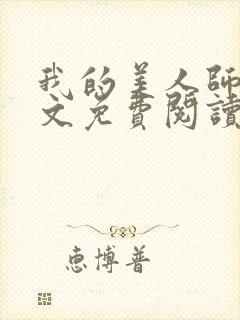 我的美人師
文免費閱讀
惠博普